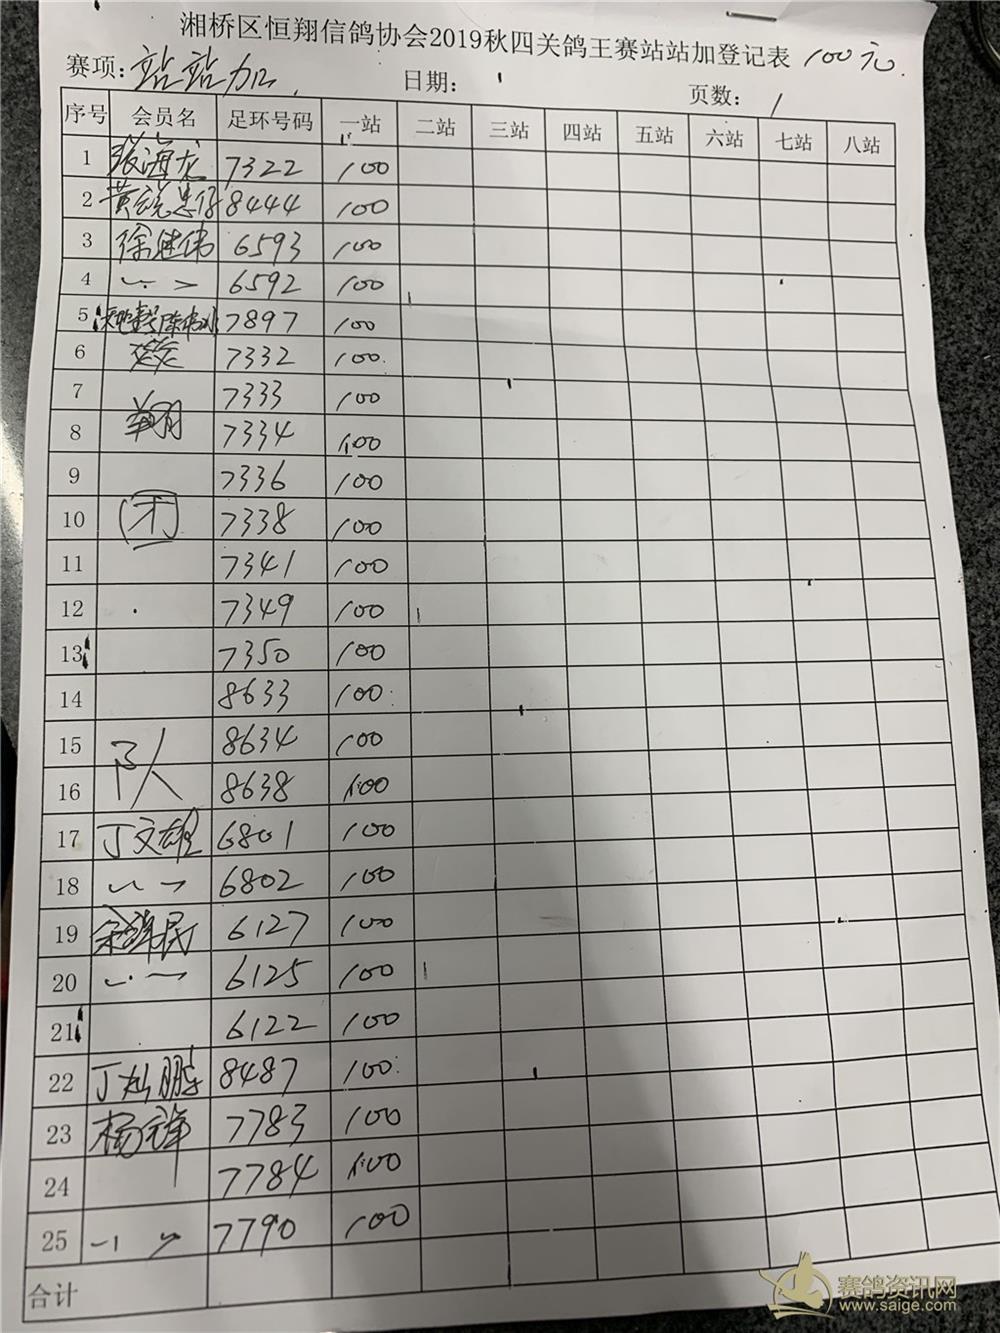 湘桥区恒翔信鸽协会2019秋四关鸽王赛站站加登记表 100元.
赛项: 站站加 日期: 页数: 1
序号 会员名 足环号码 一站 二站 三站 四站 五站 六站 七站 八站
1 张海龙 7322 100
2 黄 8444 100
3 徐继伟 6593 100
4 〃 6592 100
5 7897 100
6 7332 100
7 7333 100
8 翔 7334 100
9 7336 100
10 7338 100
11 7341 100
12 7349 100
13 7350 100
14 8633 100
15 队 8634 100
16 8638 100
17 丁文雄 6801 100
18 〃 6802 100
19 民 6127 100
20 〃 6125 100
21 6122 100
22 丁灿鹏 8487 100
23 杨锋 7783 100
24 7784 100
25 〃 7790 100
合计
赛鸽资讯网
www.saige.com